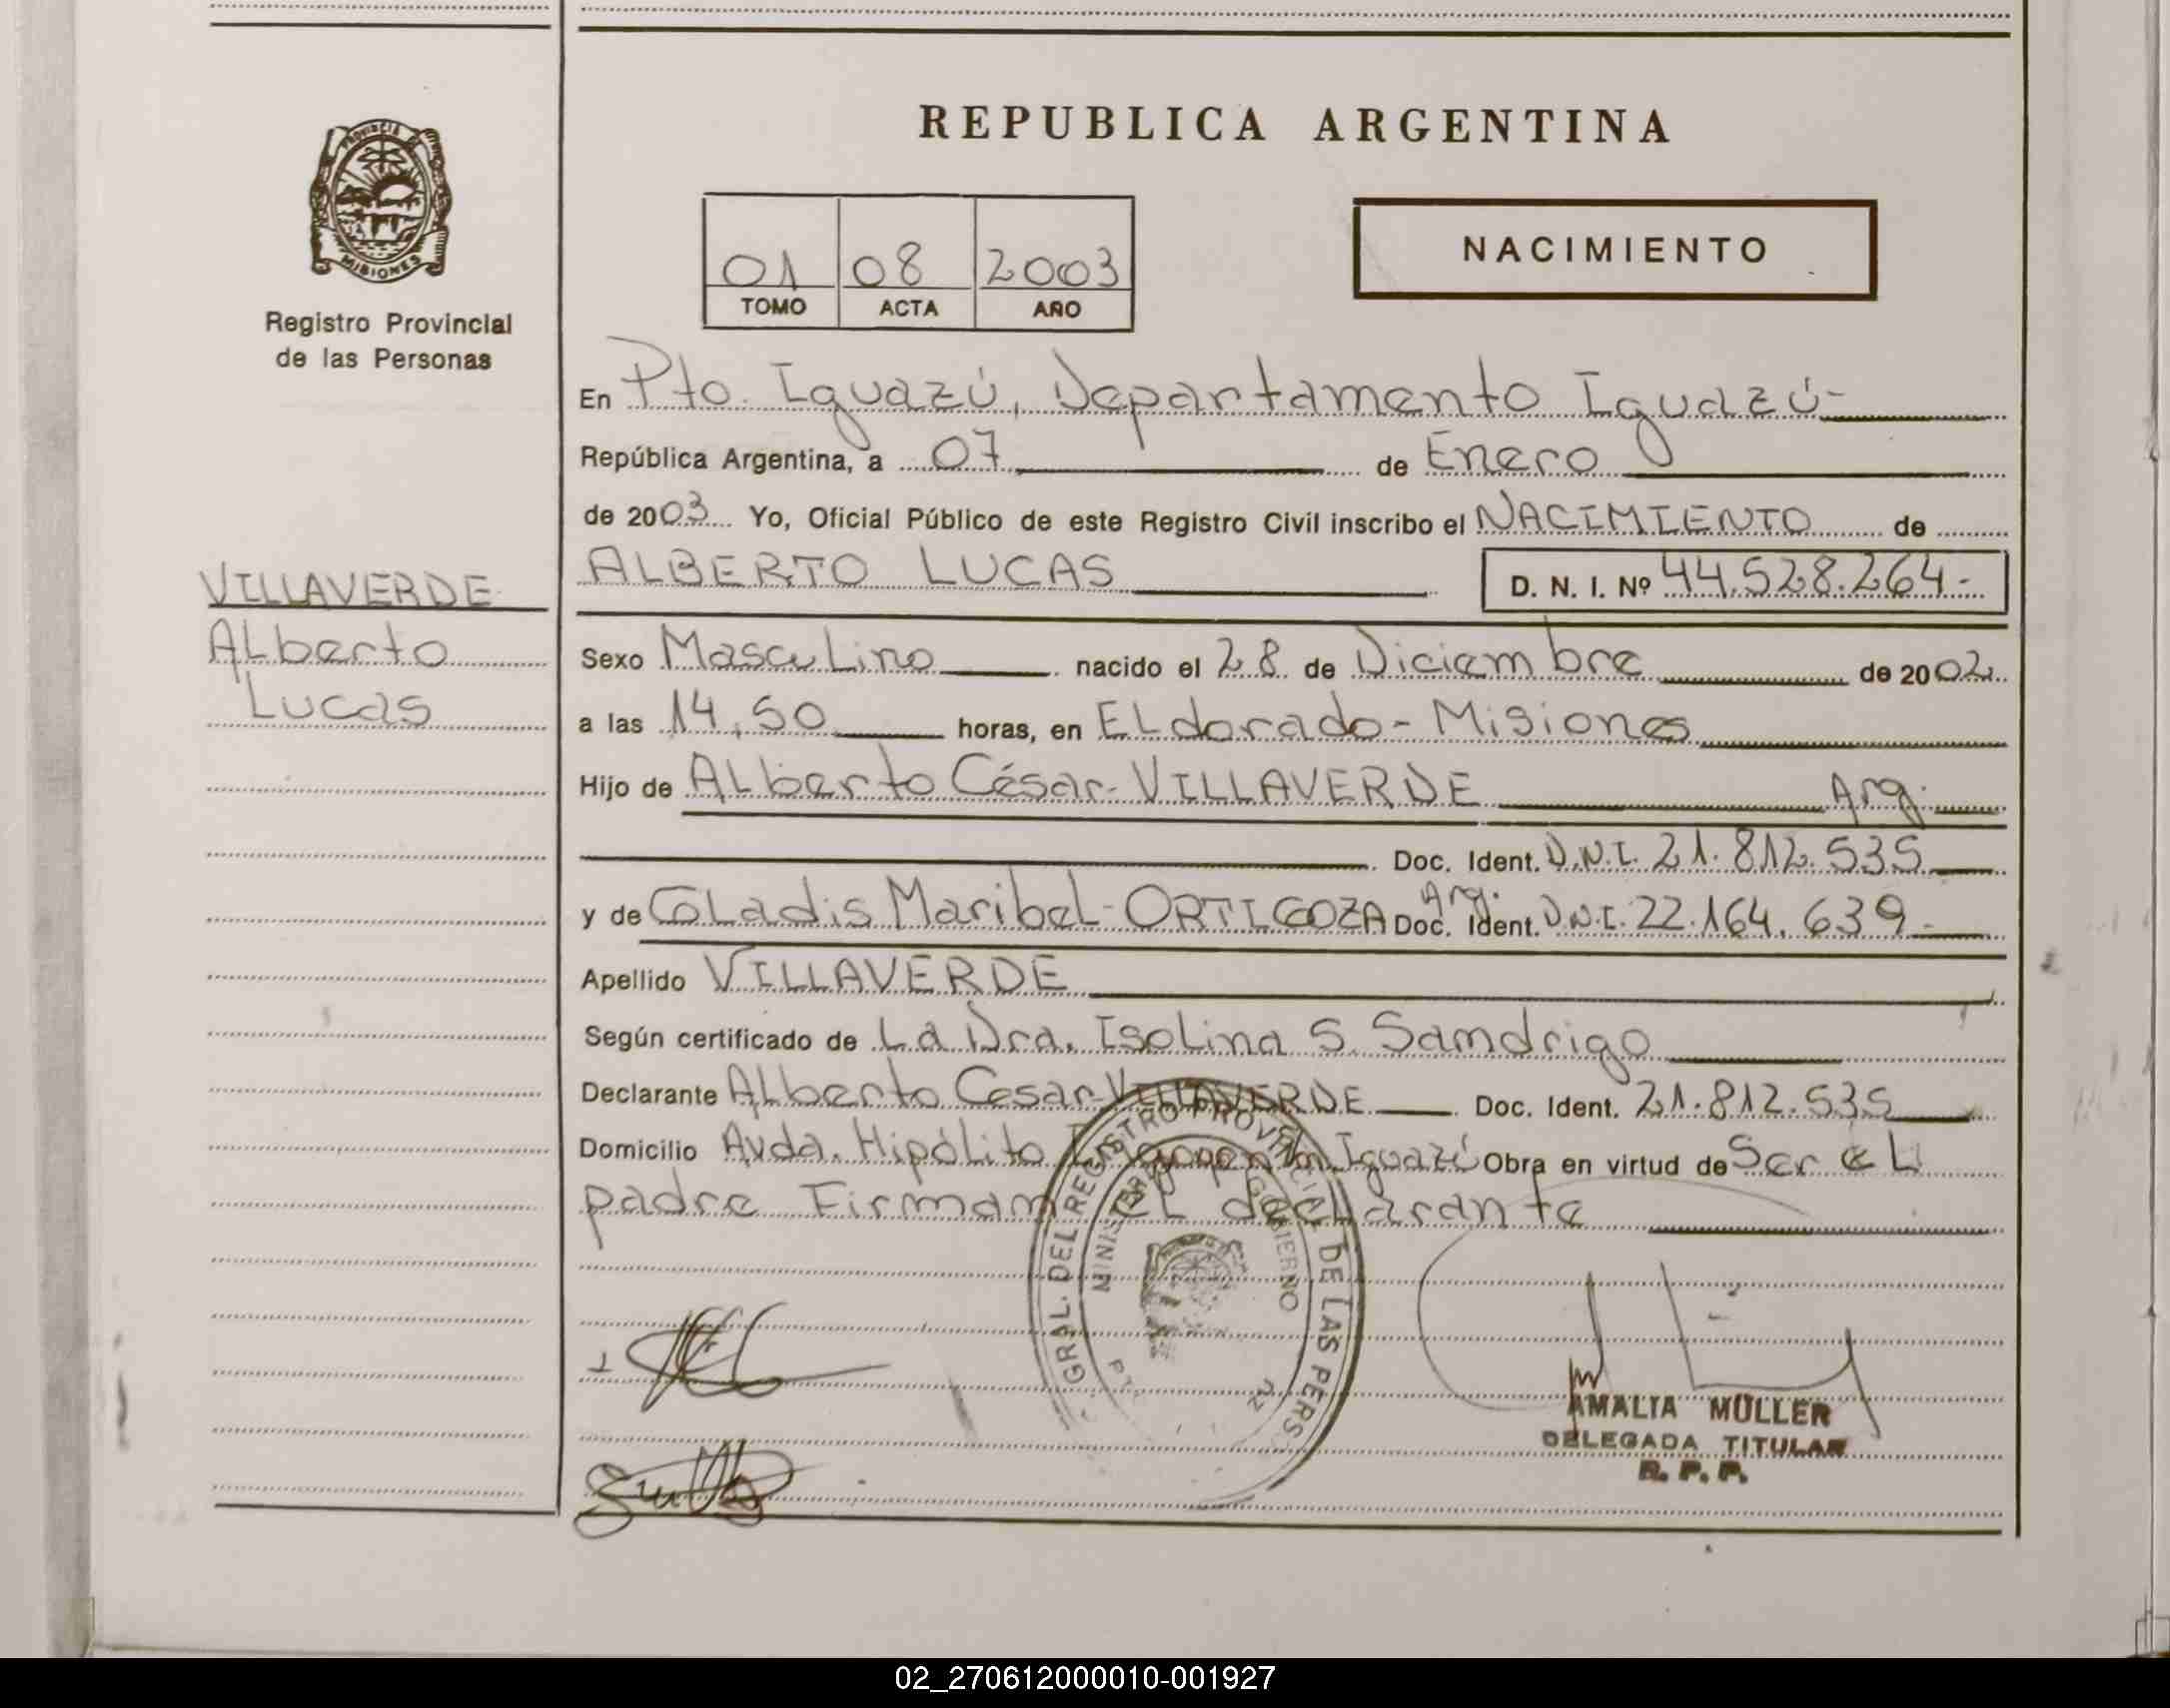 REPUBLICA ARGENTINA
PROVINCIA
MISIONES
Registro Provincial
de las Personas
01 08 2003
TOMO ACTA AÑO
NACIMIENTO
En Pto. Iguazú, Departamento Iguazú-
República Argentina, a 07 de Enero
de 2003 Yo, Oficial Público de este Registro Civil inscribo el NACIMIENTO de
ALBERTO LUCAS D. N. I. Nº 44.528.264.-
VILLAVERDE
Alberto
Lucas
Sexo Masculino nacido el 28 de Diciembre de 2002
a las 14,50 horas, en Eldorado - Misiones
Hijo de Alberto César - VILLAVERDE Arg.
Doc. Ident. D.N.I. 21.812.535
y de Gladis Maribel - ORTIGOZA Arg. Doc. Ident. D.N.I. 22.164.639.-
Apellido VILLAVERDE
Según certificado de La Dra. Isolina S. Samdrigo
Declarante Alberto Cesar - VILLAVERDE Doc. Ident. 21.812.535
Domicilio Avda. Hipólito Iguazú Obra en virtud de Ser el
padre Firman el declarante
GRAL. DEL REGISTRO PROVINCIAL DE LAS PERS
MINISTER GOBIERNO
AMALIA MULLER
DELEGADA TITULAR
R. P. P.
02_270612000010-001927